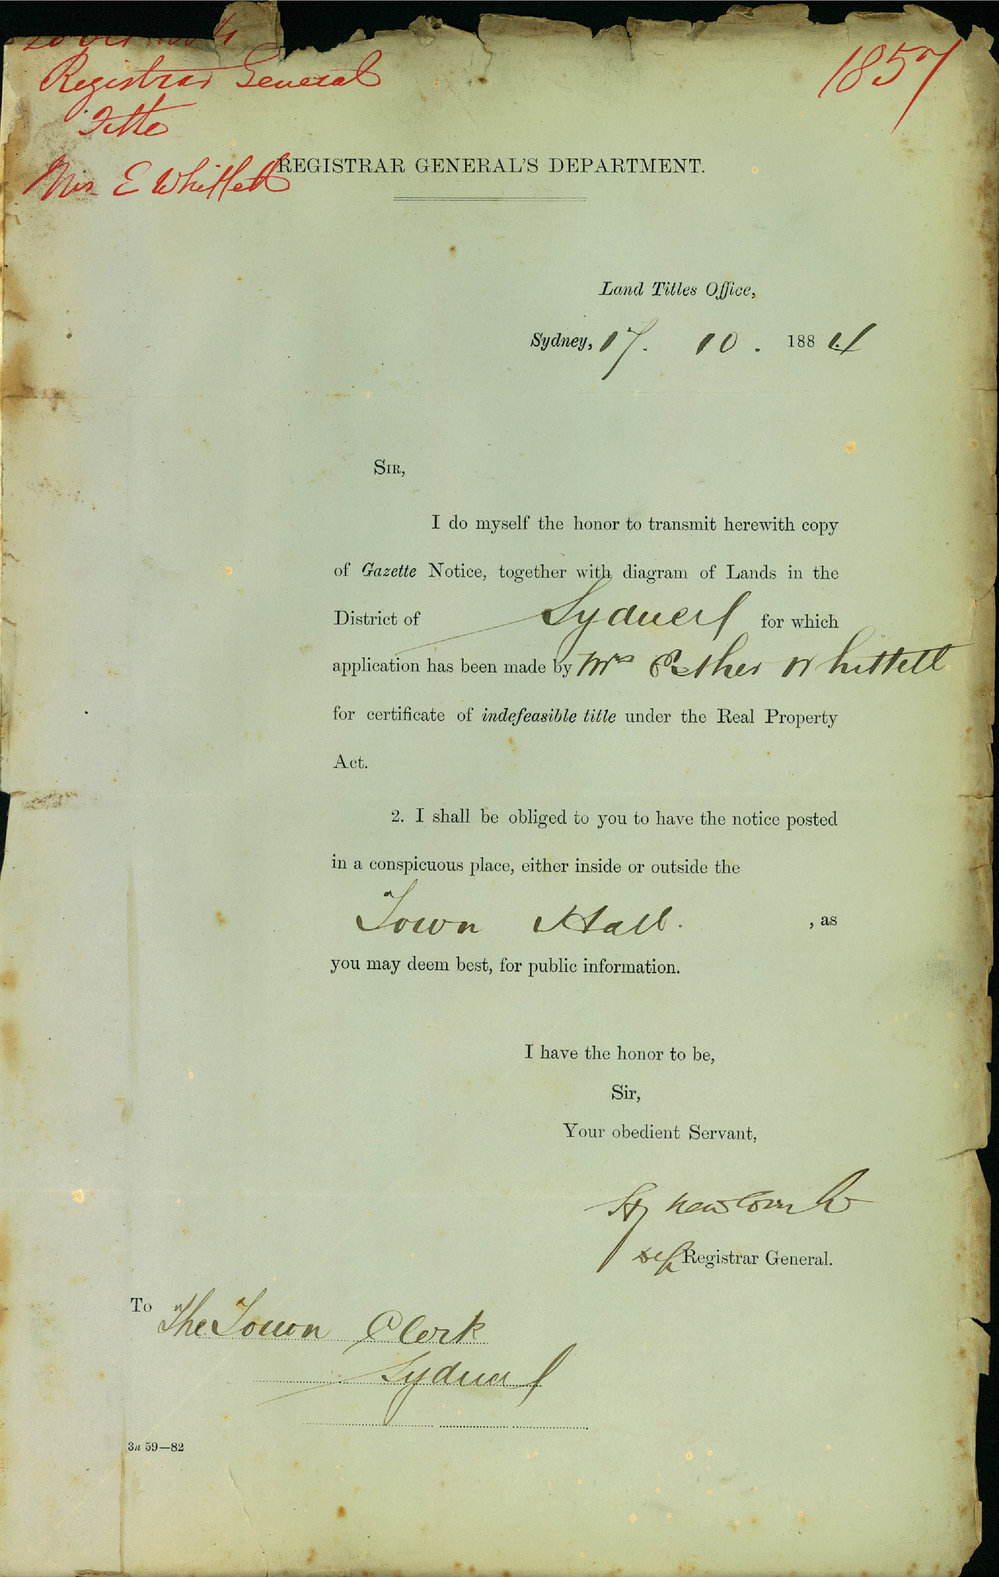 Registrar General
1857
Title
Mrs E Whittell
REGISTRAR GENERAL'S DEPARTMENT.
Land Titles Office,
Sydney, 17. 10. 1884
SIR,
I do myself the honor to transmit herewith copy
of Gazette Notice, together with diagram of Lands in the
District of Sydney for which
application has been made by Mrs Esther Whittell
for certificate of indefeasible title under the Real Property
Act.
2. I shall be obliged to you to have the notice posted
in a conspicuous place, either inside or outside the
Town Hall. , as
you may deem best, for public information.
I have the honor to be,
Sir,
Your obedient Servant,
Registrar General.
To The Town Clerk
Sydney
3a 59—82